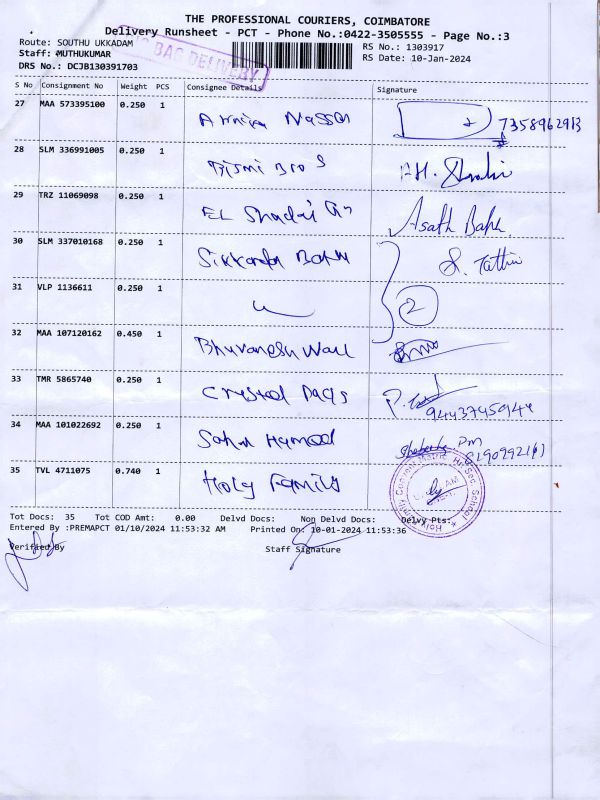 THE PROFESSIONAL COURIERS, COIMBATORE
Delivery Runsheet - PCT - Phone No.:0422-3505555 - Page No.:3
Route: SOUTHU UKKADAM
RS No.: 1303917
Staff: MUTHUKUMAR
RS Date: 10-Jan-2024
DRS No.: DCJB130391703
BAG DELIVERY
S No Consignment No Weight PCS Consignee Details Signature
27 MAA 573395100 0.250 1 Nasser
28 SLM 336991005 0.250 1 Bismi Bros
29 TRZ 11069098 0.250 1 EL Shadai
30 SLM 337010168 0.250 1
31 VLP 1136611 0.250 1 2
32 MAA 107120162 0.450 1 Bhuvanesh
33 TMR 5865740 0.250 1 Crystal 9443745944
34 MAA 101022692 0.250 1 Hameed
35 TVL 4711075 0.740 1 Holy Family
Holy Family Convent Matric Hr. Sec. School
Tot Docs: 35 Tot COD Amt: 0.00 Delvd Docs: Non Delvd Docs: Delvy Pts:
Entered By :PREMAPCT 01/10/2024 11:53:32 AM Printed On: 10-01-2024 11:53:36
Perified By Staff Signature